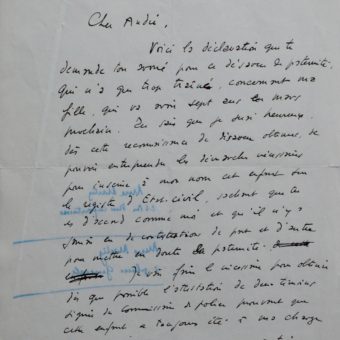 Cher André,
Voici la déclaration que te
demande ton avoué pour ce désaveu de paternité,
qui n'a que trop traîné, concernant ma
fille, qui va avoir sept ans en mars
prochain. Tu sais que je suis heureux,
dès cette reconnaissance de désaveu obtenue, de
pouvoir entreprendre les démarches nécessaires
pour inscrire à mon nom cet enfant sur
le registre d'état-civil, sachant que tu
es d'accord comme moi et qu'il n'y a
jamais eu de contestation de part et d'autre
pour mettre en doute la paternité.
faire le nécessaire pour obtenir
dès que possible l'attestation de deux témoins
signée du commissaire de police prouvant que
cette enfant a toujours été à ma charge